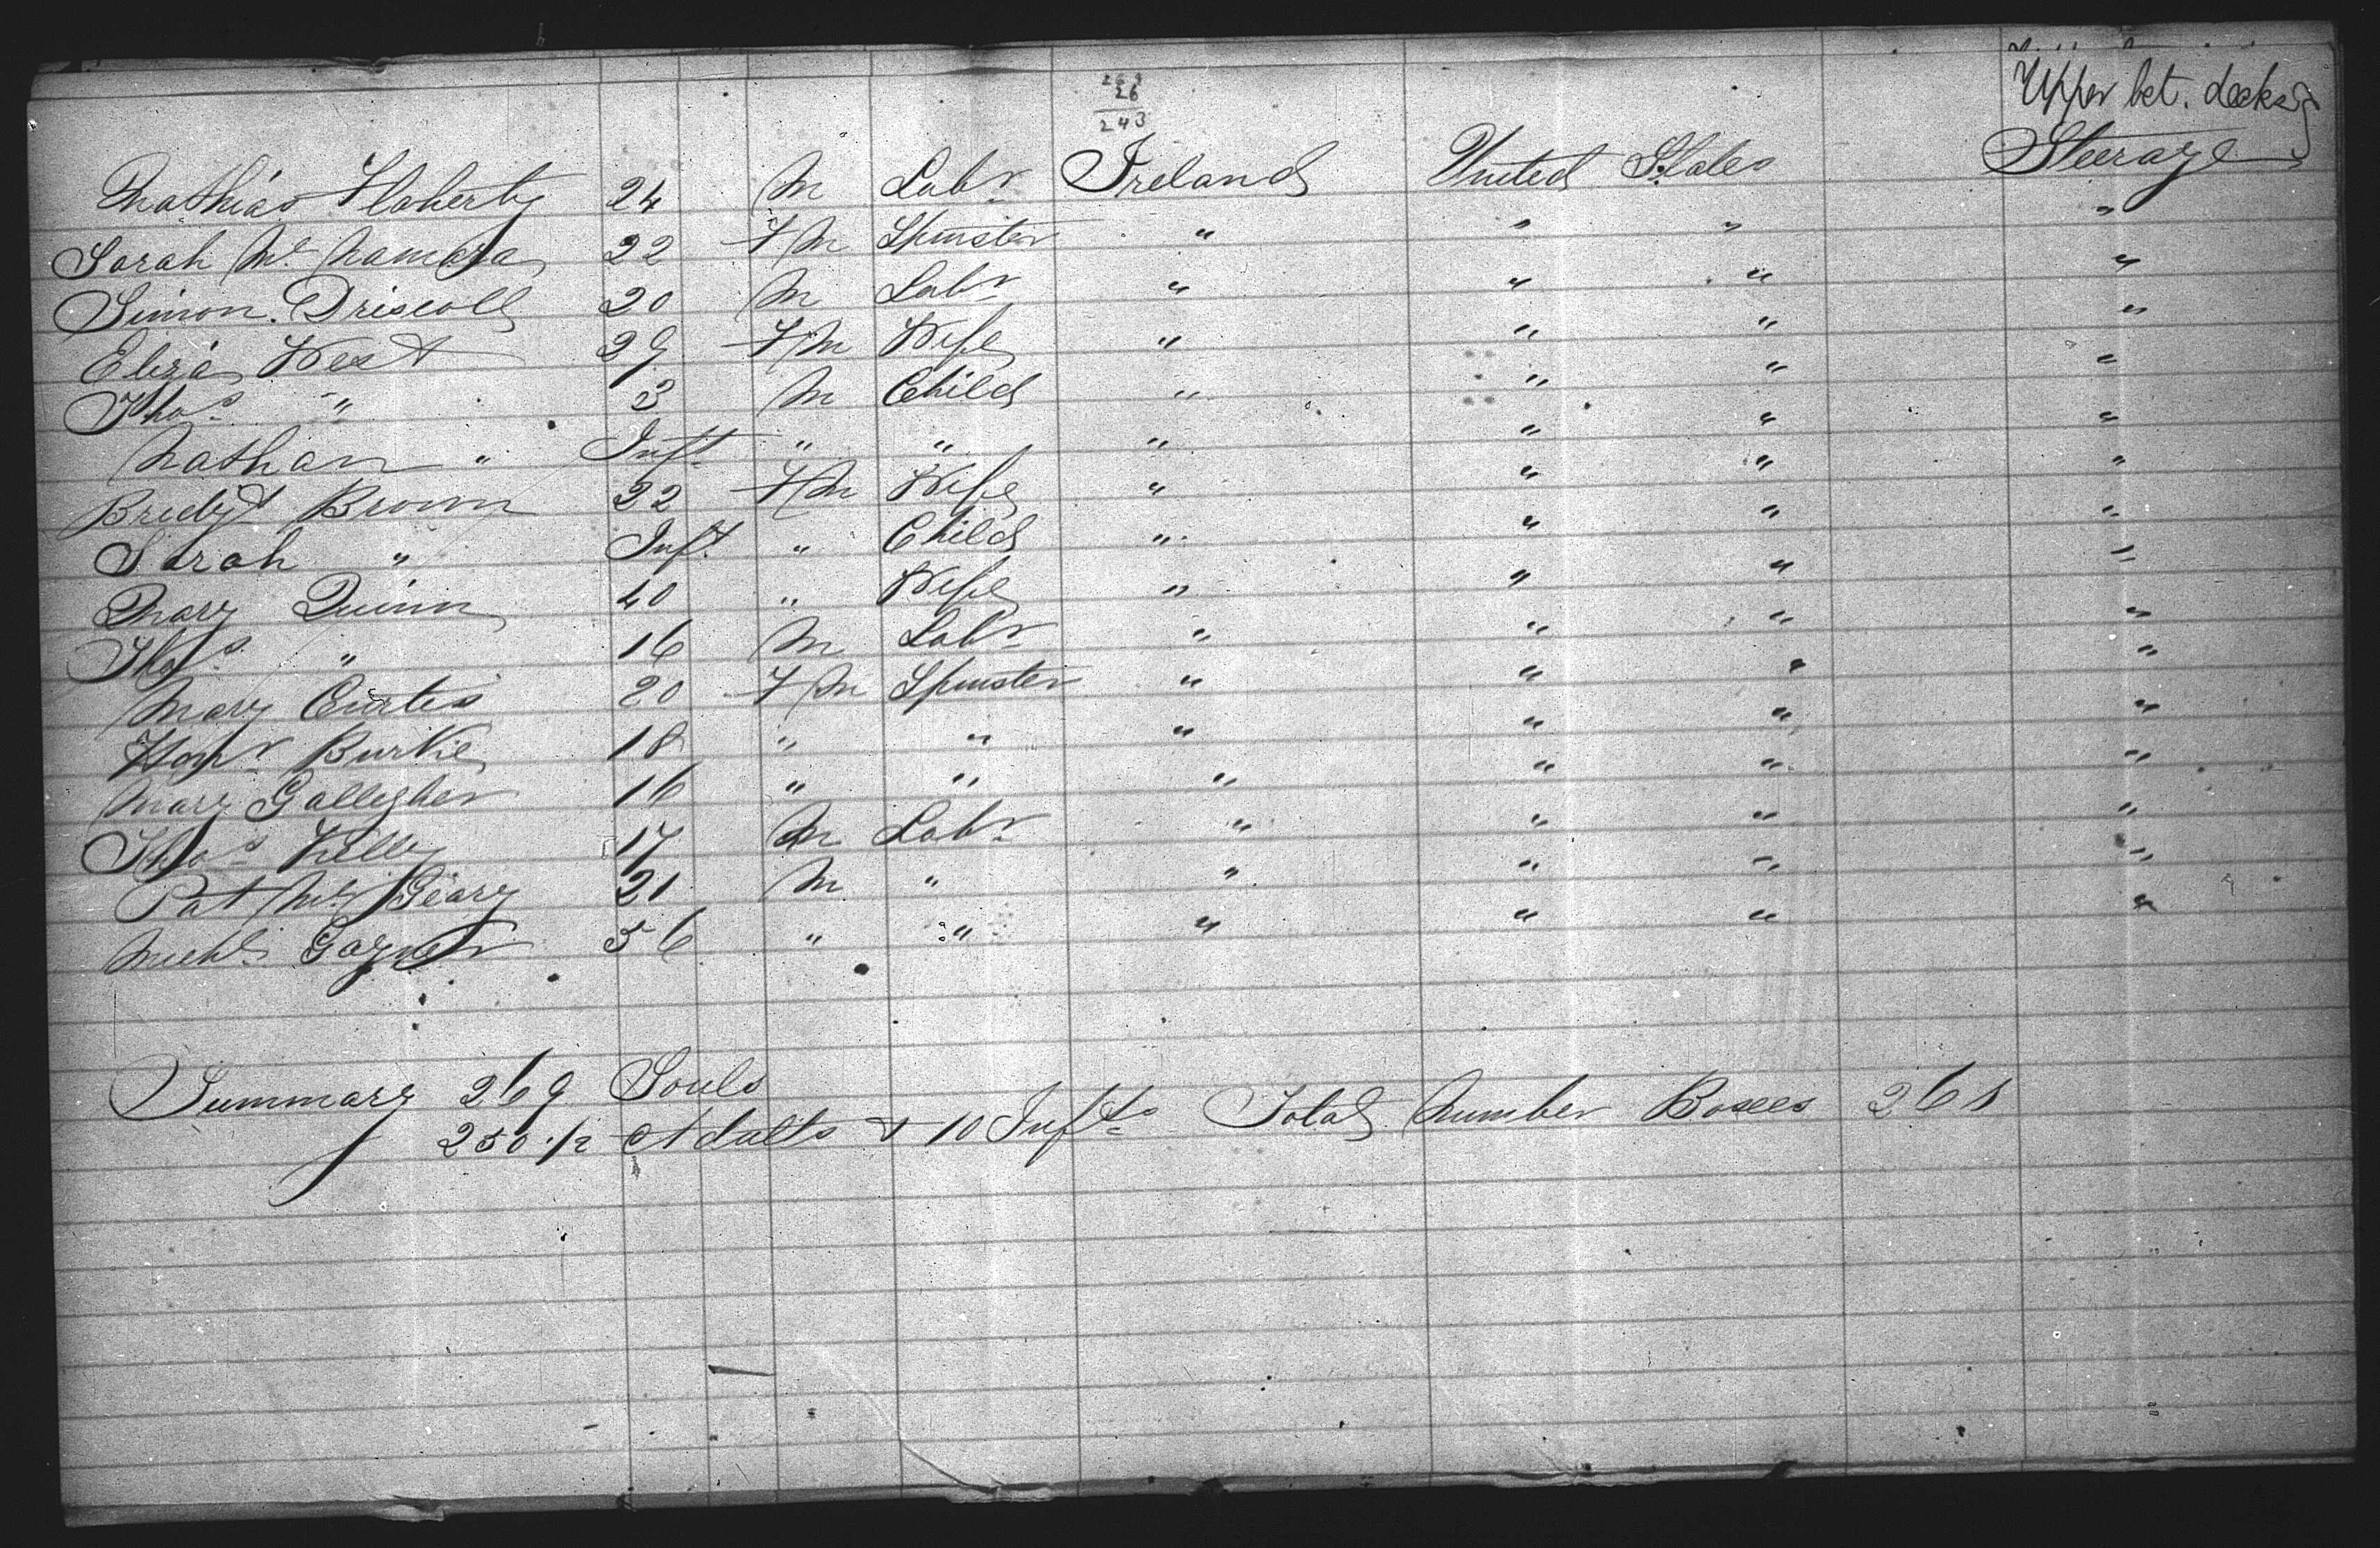 Upper bet. decks
269
26
243
Mathias Flaherty 24 M Labr Ireland United States Steerage
Sarah Mc Namara 22 Fm Spinster " " " "
Simon Driscoll 20 M Labr " " " "
Eliza West 29 Fm Wife " " " "
Thos " 3 M Child " " " "
Nathan " Inft " " " " " "
Bridgt Brown 22 Fm Wife " " " "
Sarah " Inft. " Child " " " "
Mary Quinn 40 " Wife " " " "
Thos " 16 M Labr " " " "
Mary Curtis 20 Fm Spinster " " " "
Honr Burke 18 " " " " " "
Mary Gallegher 16 " " " " " "
Thos Kelly 17 M Labr " " " "
Pat Mc Geary 21 M " " " " "
Michl 56 " " " " " "
Summary 269 Souls
250 1/2 Adults & 10 Infts Total Number Boxes 261